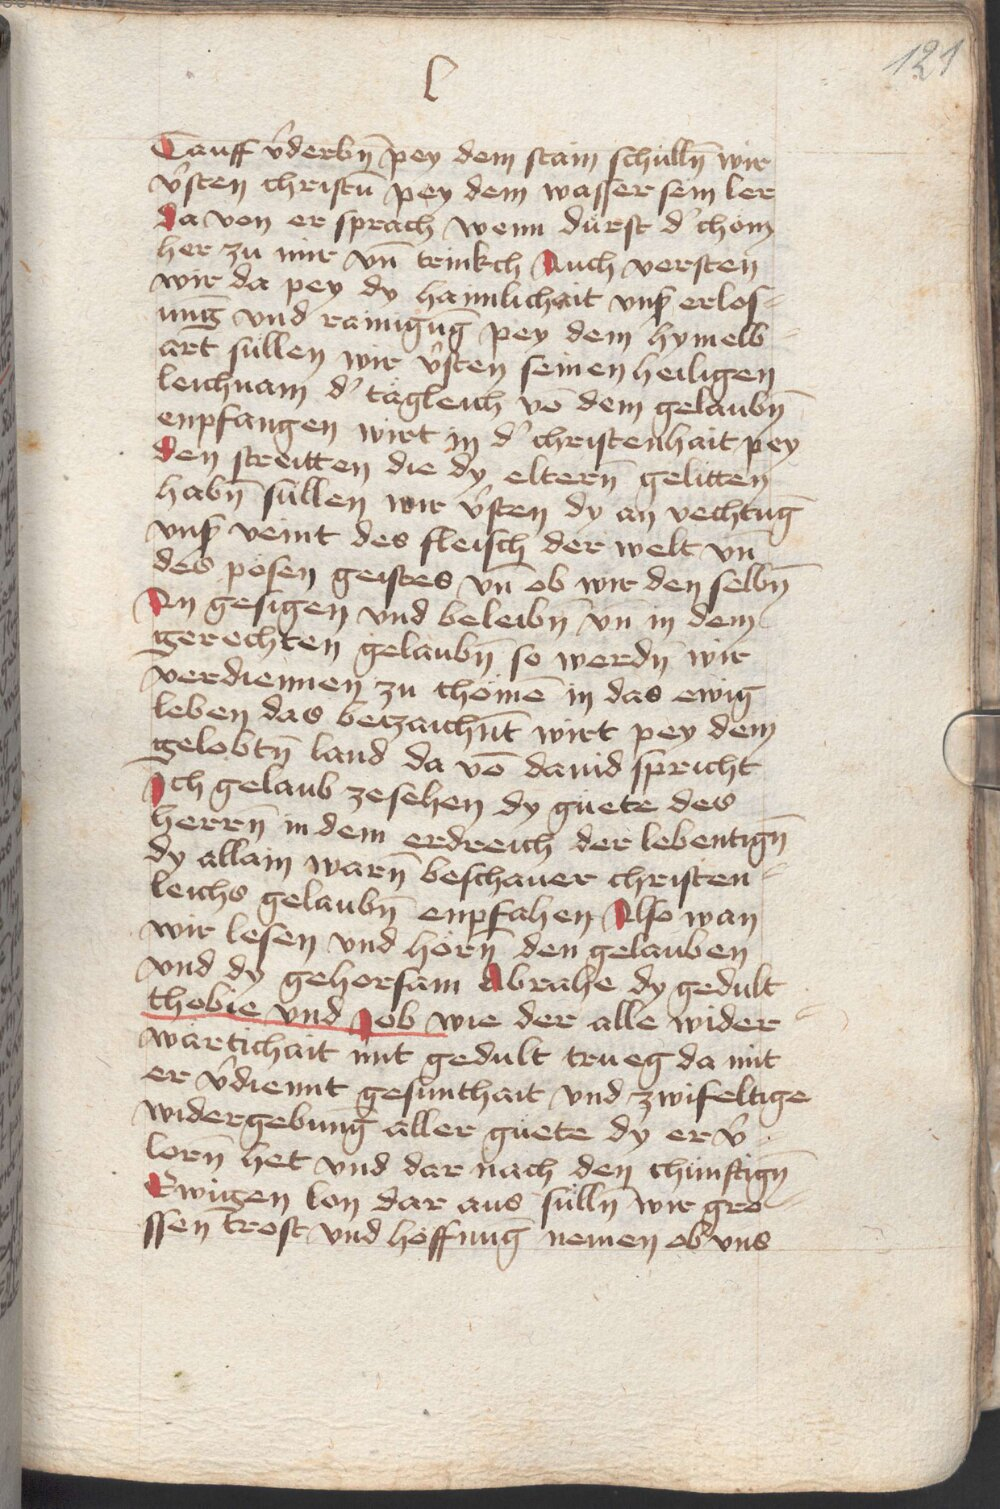 121
Tauff v̄derbn̄ pey dem stain schulln̄ wir
v̄sten christū pey dem wasser sein ler
da von er sprach wenn dürst d' chöm
her zu mir vn̄ trinkch Auch versten
wir da pey dy haimlichait vns' erlos=
ung vnd rainigūg pey dem hymelb=
art sullen wir v̄sten seinen heiligen
leichnam d' tägleich vō dem gelaubn̄
enpfangen wirt in d' christenhait pey
den streitten die dy eltern̄ gelitten
habn̄ sullen wir v̄sten dy an vechtūg
vns' veint des fleisch der welt vn̄
des pösen geistes vn̄ ob wir den selbn̄
An gesigen vnd beleibn̄ vn̄ in dem
gerechten gelaubn̄ so werdn̄ wir
verdiennen zu chömē in das ewig
leben das betzaichn̄t wirt pey dem
gelobtn̄ land da vō dauid spricht
Ich gelaub zesehen dy guete des
herrn̄ in dem erdreich der lebentign̄
dy allain warn̄ beschauer christen=
leichs gelaubn̄ enpfahen Also wan
wir lesen vnd hörn̄ den gelauben
vnd dy gehorsam Abrahe dy gedult
thobie vnd Job wie der alle wider=
wärtichait mit gedult trueg da mit
er v̄dient gesunthait vnd zwifeltige
widergebung aller guete dy er v̄=
lorn̄ het vnd dar nach den chunftign̄
Ewigen lon dar aus sulln̄ wir gro=
ssen trost vnd höffnūg nemen ob vns